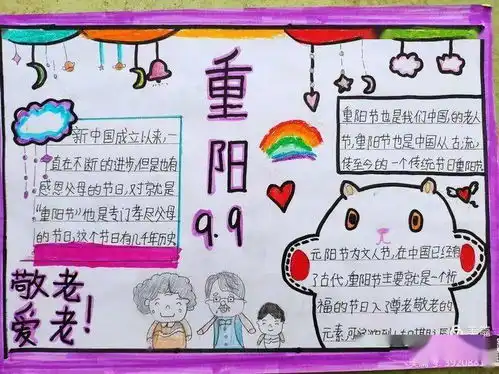 重阳
9.9
新中国成立以来,一
直在不断的进步,但是也有
感恩父母的节日,对就是
“重阳节”他是专门孝尽父母
的节日,这个节日有几千年历史
敬老
爱老!
重阳节也是我们中国的老人
节,重阳节也是中国从古流
传至今的一个传统节日重阳节
元阳节为文人节,在中国已经有
了古代,重阳节主要就是一个祈
福的节日入了尊老敬老的
元素